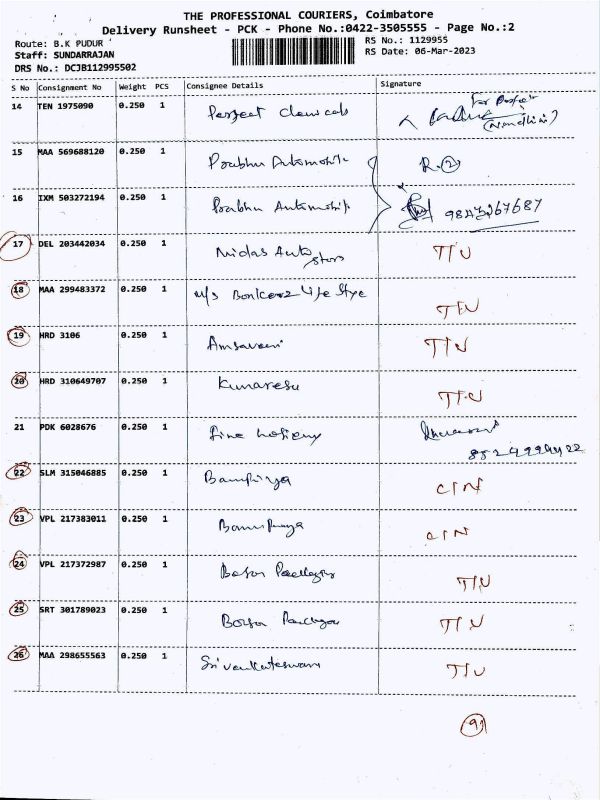 THE PROFESSIONAL COURIERS, Coimbatore
Delivery Runsheet - PCK - Phone No.:0422-3505555 - Page No.:2
Route: B.K PUDUR
RS No.: 1129955
Staff: SUNDARRAJAN
RS Date: 06-Mar-2023
DRS No.: DCJB112995502
S No Consignment No Weight PCS Consignee Details Signature
14 TEN 1975090 0.250 1 Perfect Chemicals
15 MAA 569688120 0.250 1 Prabhu Automobile R.2
16 IXM 503272194 0.250 1 Prabhu Automobile 9843267687
17 DEL 203442034 0.250 1 Midas Auto Stors T/N
18 MAA 299483372 0.250 1 M/s Bonkerz Life Stye T/N
19 HRD 3106 0.250 1 T/N
20 HRD 310649707 0.250 1 Kumaresu T/N
21 PDK 6028676 0.250 1 Fine
22 SLM 315046885 0.250 1 C/N
23 VPL 217383011 0.250 1 C/N
24 VPL 217372987 0.250 1 T/N
25 SRT 301789023 0.250 1 T/N
26 MAA 298655563 0.250 1 Sri Venkateswara T/N